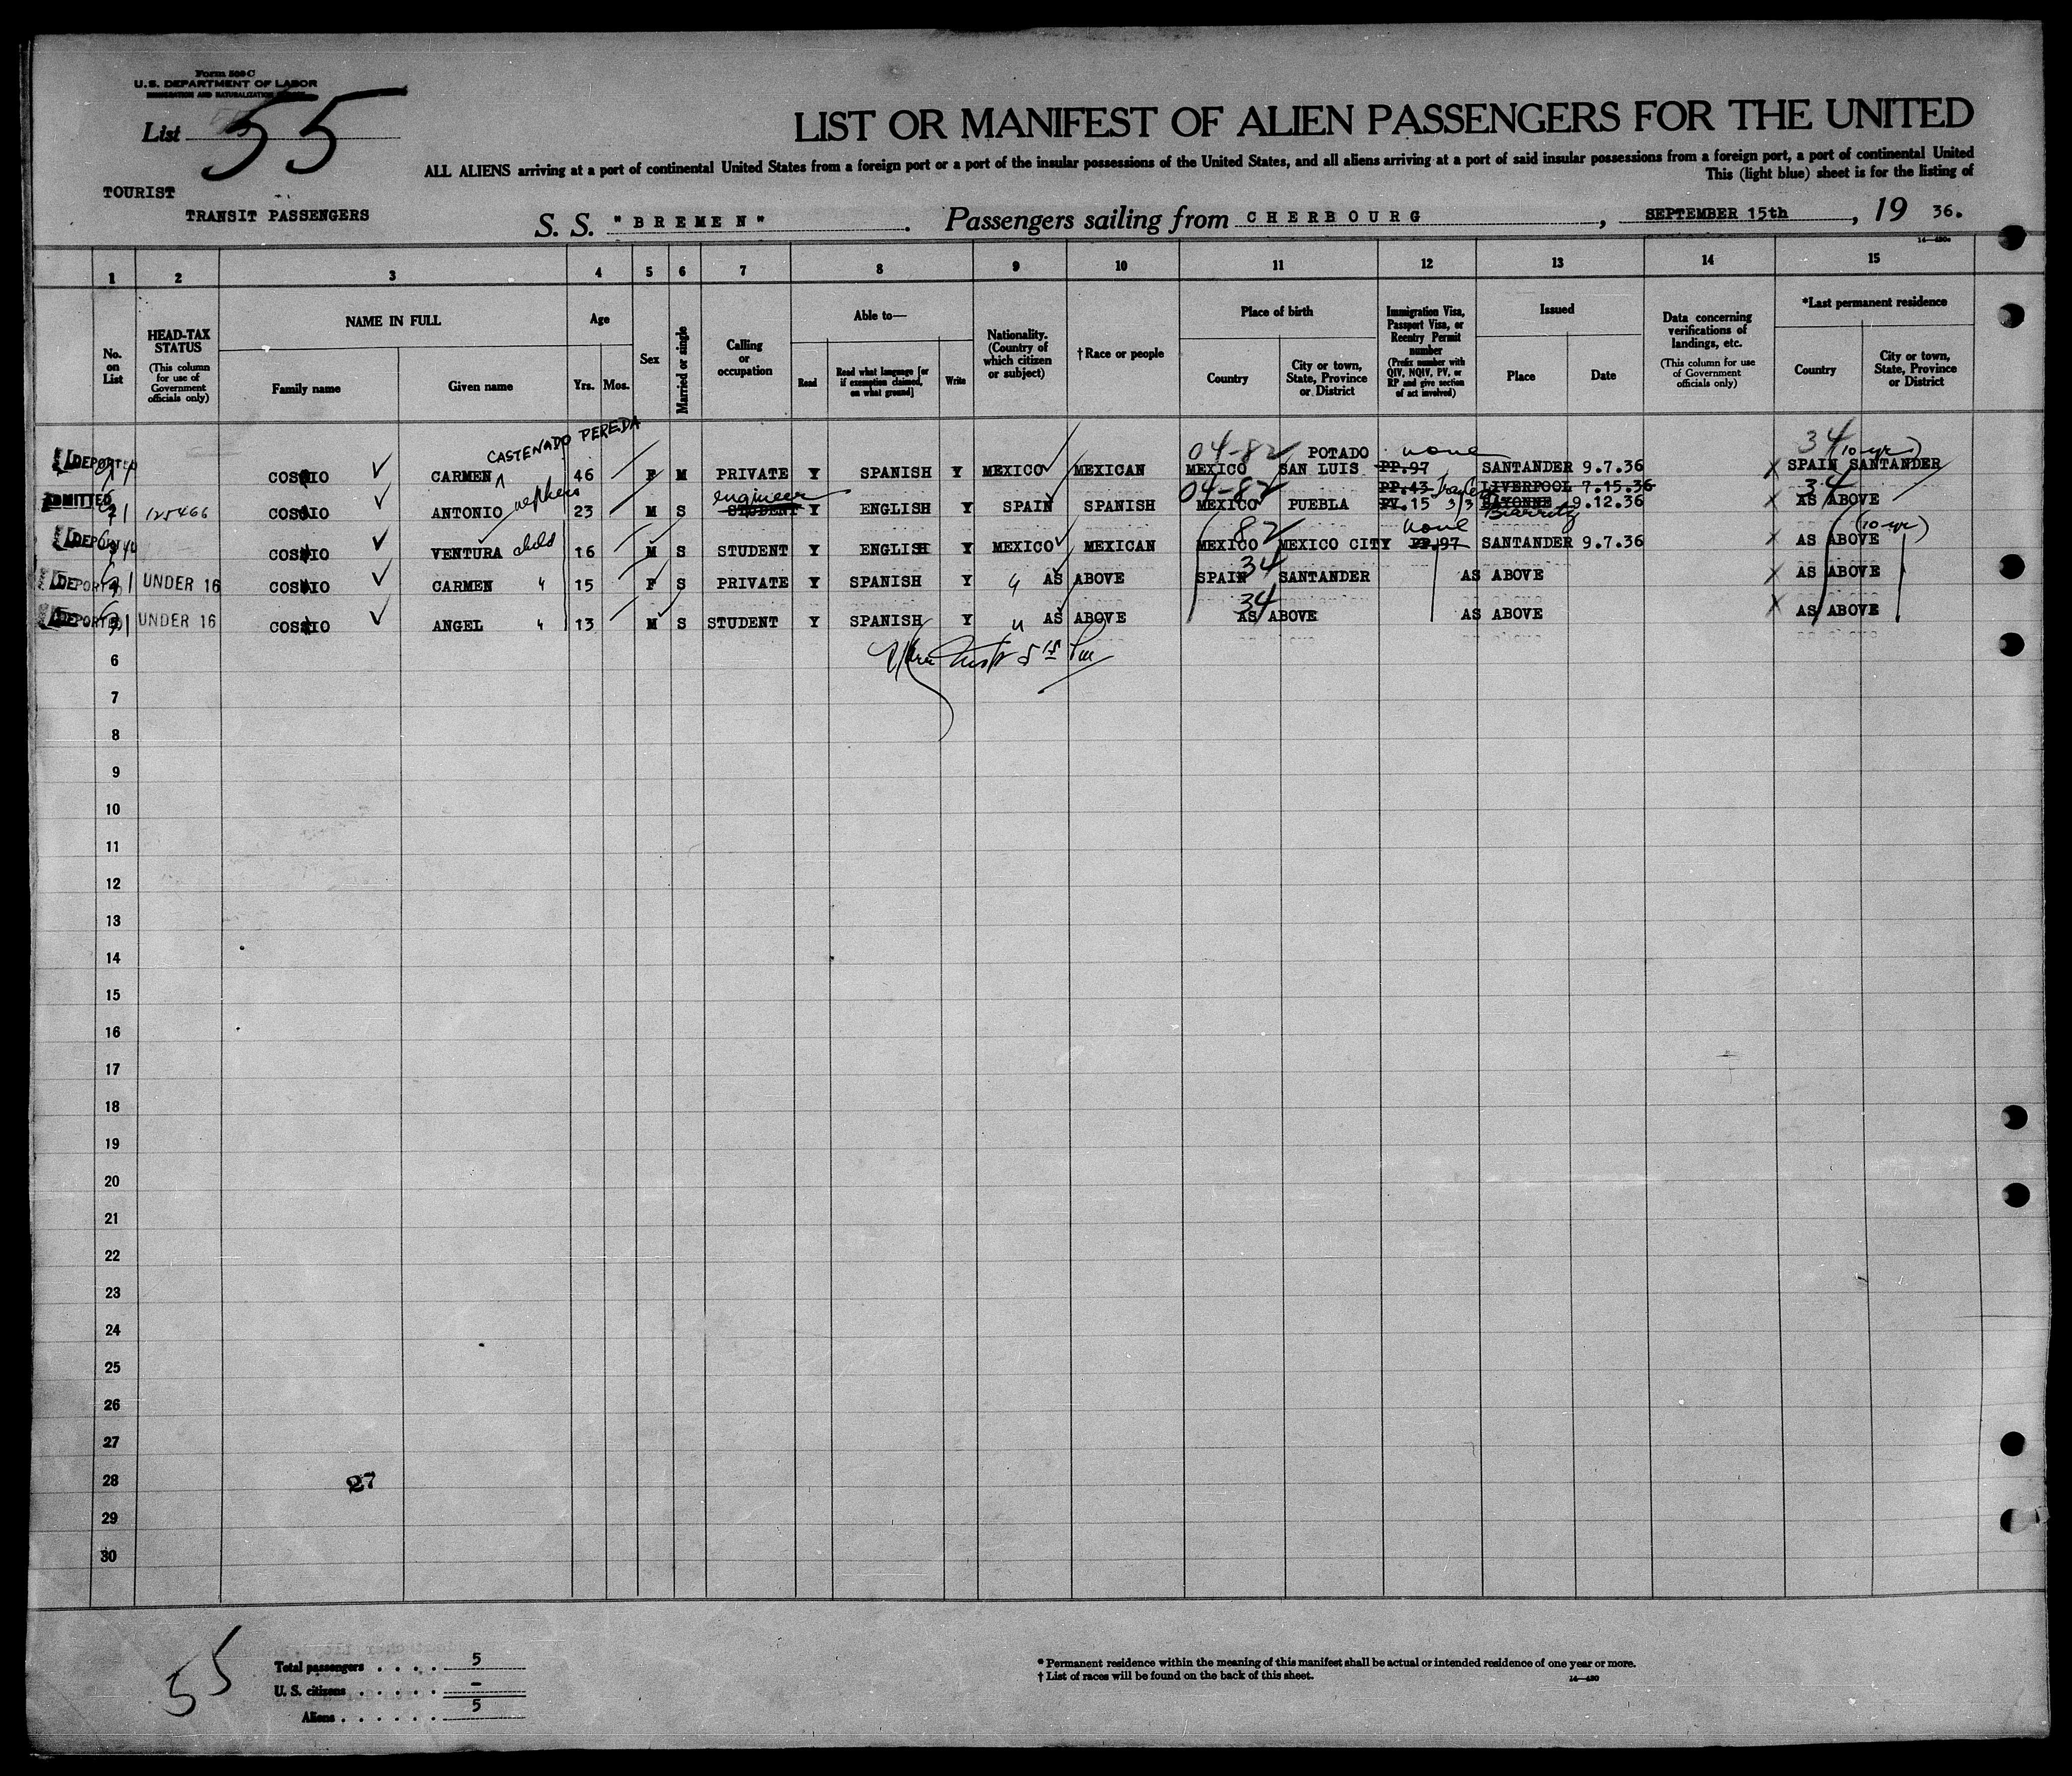 Form 500 C
U.S. DEPARTMENT OF LABOR
IMMIGRATION AND NATURALIZATION SERVICE
List 55
LIST OR MANIFEST OF ALIEN PASSENGERS FOR THE UNITED
ALL ALIENS arriving at a port of continental United States from a foreign port or a port of the insular possessions of the United States, and all aliens arriving at a port of said insular possessions from a foreign port, a port of continental United
This (light blue) sheet is for the listing of
TOURIST
TRANSIT PASSENGERS
S. S. "BREMEN". Passengers sailing from CHERBOURG, SEPTEMBER 15th, 19 36.
1 2 3 4 5 6 7 8 9 10 11 12 13 14 15
No. on List
HEAD-TAX STATUS
(This column for use of Government officials only)
NAME IN FULL
Family name
Given name
Age
Yrs. Mos.
Sex
Married or single
Calling or occupation
Able to—
Read
Read what language [or if exemption claimed, on what ground]
Write
Nationality. (Country of which citizen or subject)
†Race or people
Place of birth
Country
City or town, State, Province or District
Immigration Visa, Passport Visa, or Reentry Permit number
(Prefix number with QIV, NQIV, PV, or RP and give section of act involved)
Issued
Place
Date
Data concerning verifications of landings, etc.
(This column for use of Government officials only)
*Last permanent residence
Country
City or town, State, Province or District
CASTENADO PEREDA
04-82 POTADO none 34 (10 yr)
DEPORTED COSSIO CARMEN 46 F M PRIVATE Y SPANISH Y MEXICO MEXICAN MEXICO SAN LUIS PP.97 SANTANDER 9.7.36 X SPAIN SANTANDER
nephew engineer 04-82 PP.43 LIVERPOOL 7.15.36 34
ADMITTED 125466 COSSIO ANTONIO 23 M S STUDENT Y ENGLISH Y SPAIN SPANISH MEXICO PUEBLA PV.15 3/3 BAYONNE 9.12.36 X AS ABOVE
child 82 none Biarritz (10 yr)
DEPORTED COSSIO VENTURA 16 M S STUDENT Y ENGLISH Y MEXICO MEXICAN MEXICO MEXICO CITY PP.97 SANTANDER 9.7.36 X AS ABOVE
34
DEPORTED UNDER 16 COSSIO CARMEN " 15 F S PRIVATE Y SPANISH Y " AS ABOVE SPAIN SANTANDER AS ABOVE X AS ABOVE
34
DEPORTED UNDER 16 COSSIO ANGEL " 13 M S STUDENT Y SPANISH Y " AS ABOVE AS ABOVE AS ABOVE X AS ABOVE
6
7
8
9
10
11
12
13
14
15
16
17
18
19
20
21
22
23
24
25
26
27
28 27
29
30
55
Total passengers . . . . 5
U. S. citizens . . . . . . –
Aliens . . . . . . 5
* Permanent residence within the meaning of this manifest shall be actual or intended residence of one year or more.
† List of races will be found on the back of this sheet.
14—430